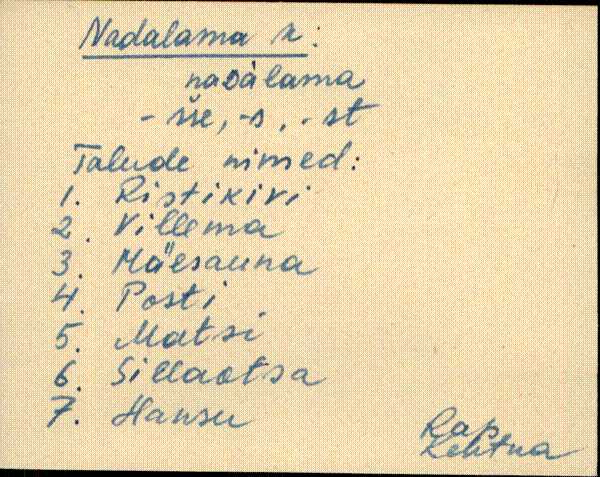 Nadalama k:
nadàlama
- sse, -s, - st
Talude nimed:
1. Ristikivi
2. Villema
3. Mäesauna
4. Posti
5. Matsi
6. Sillaotsa
7. Hansu
Rap
Kehtna